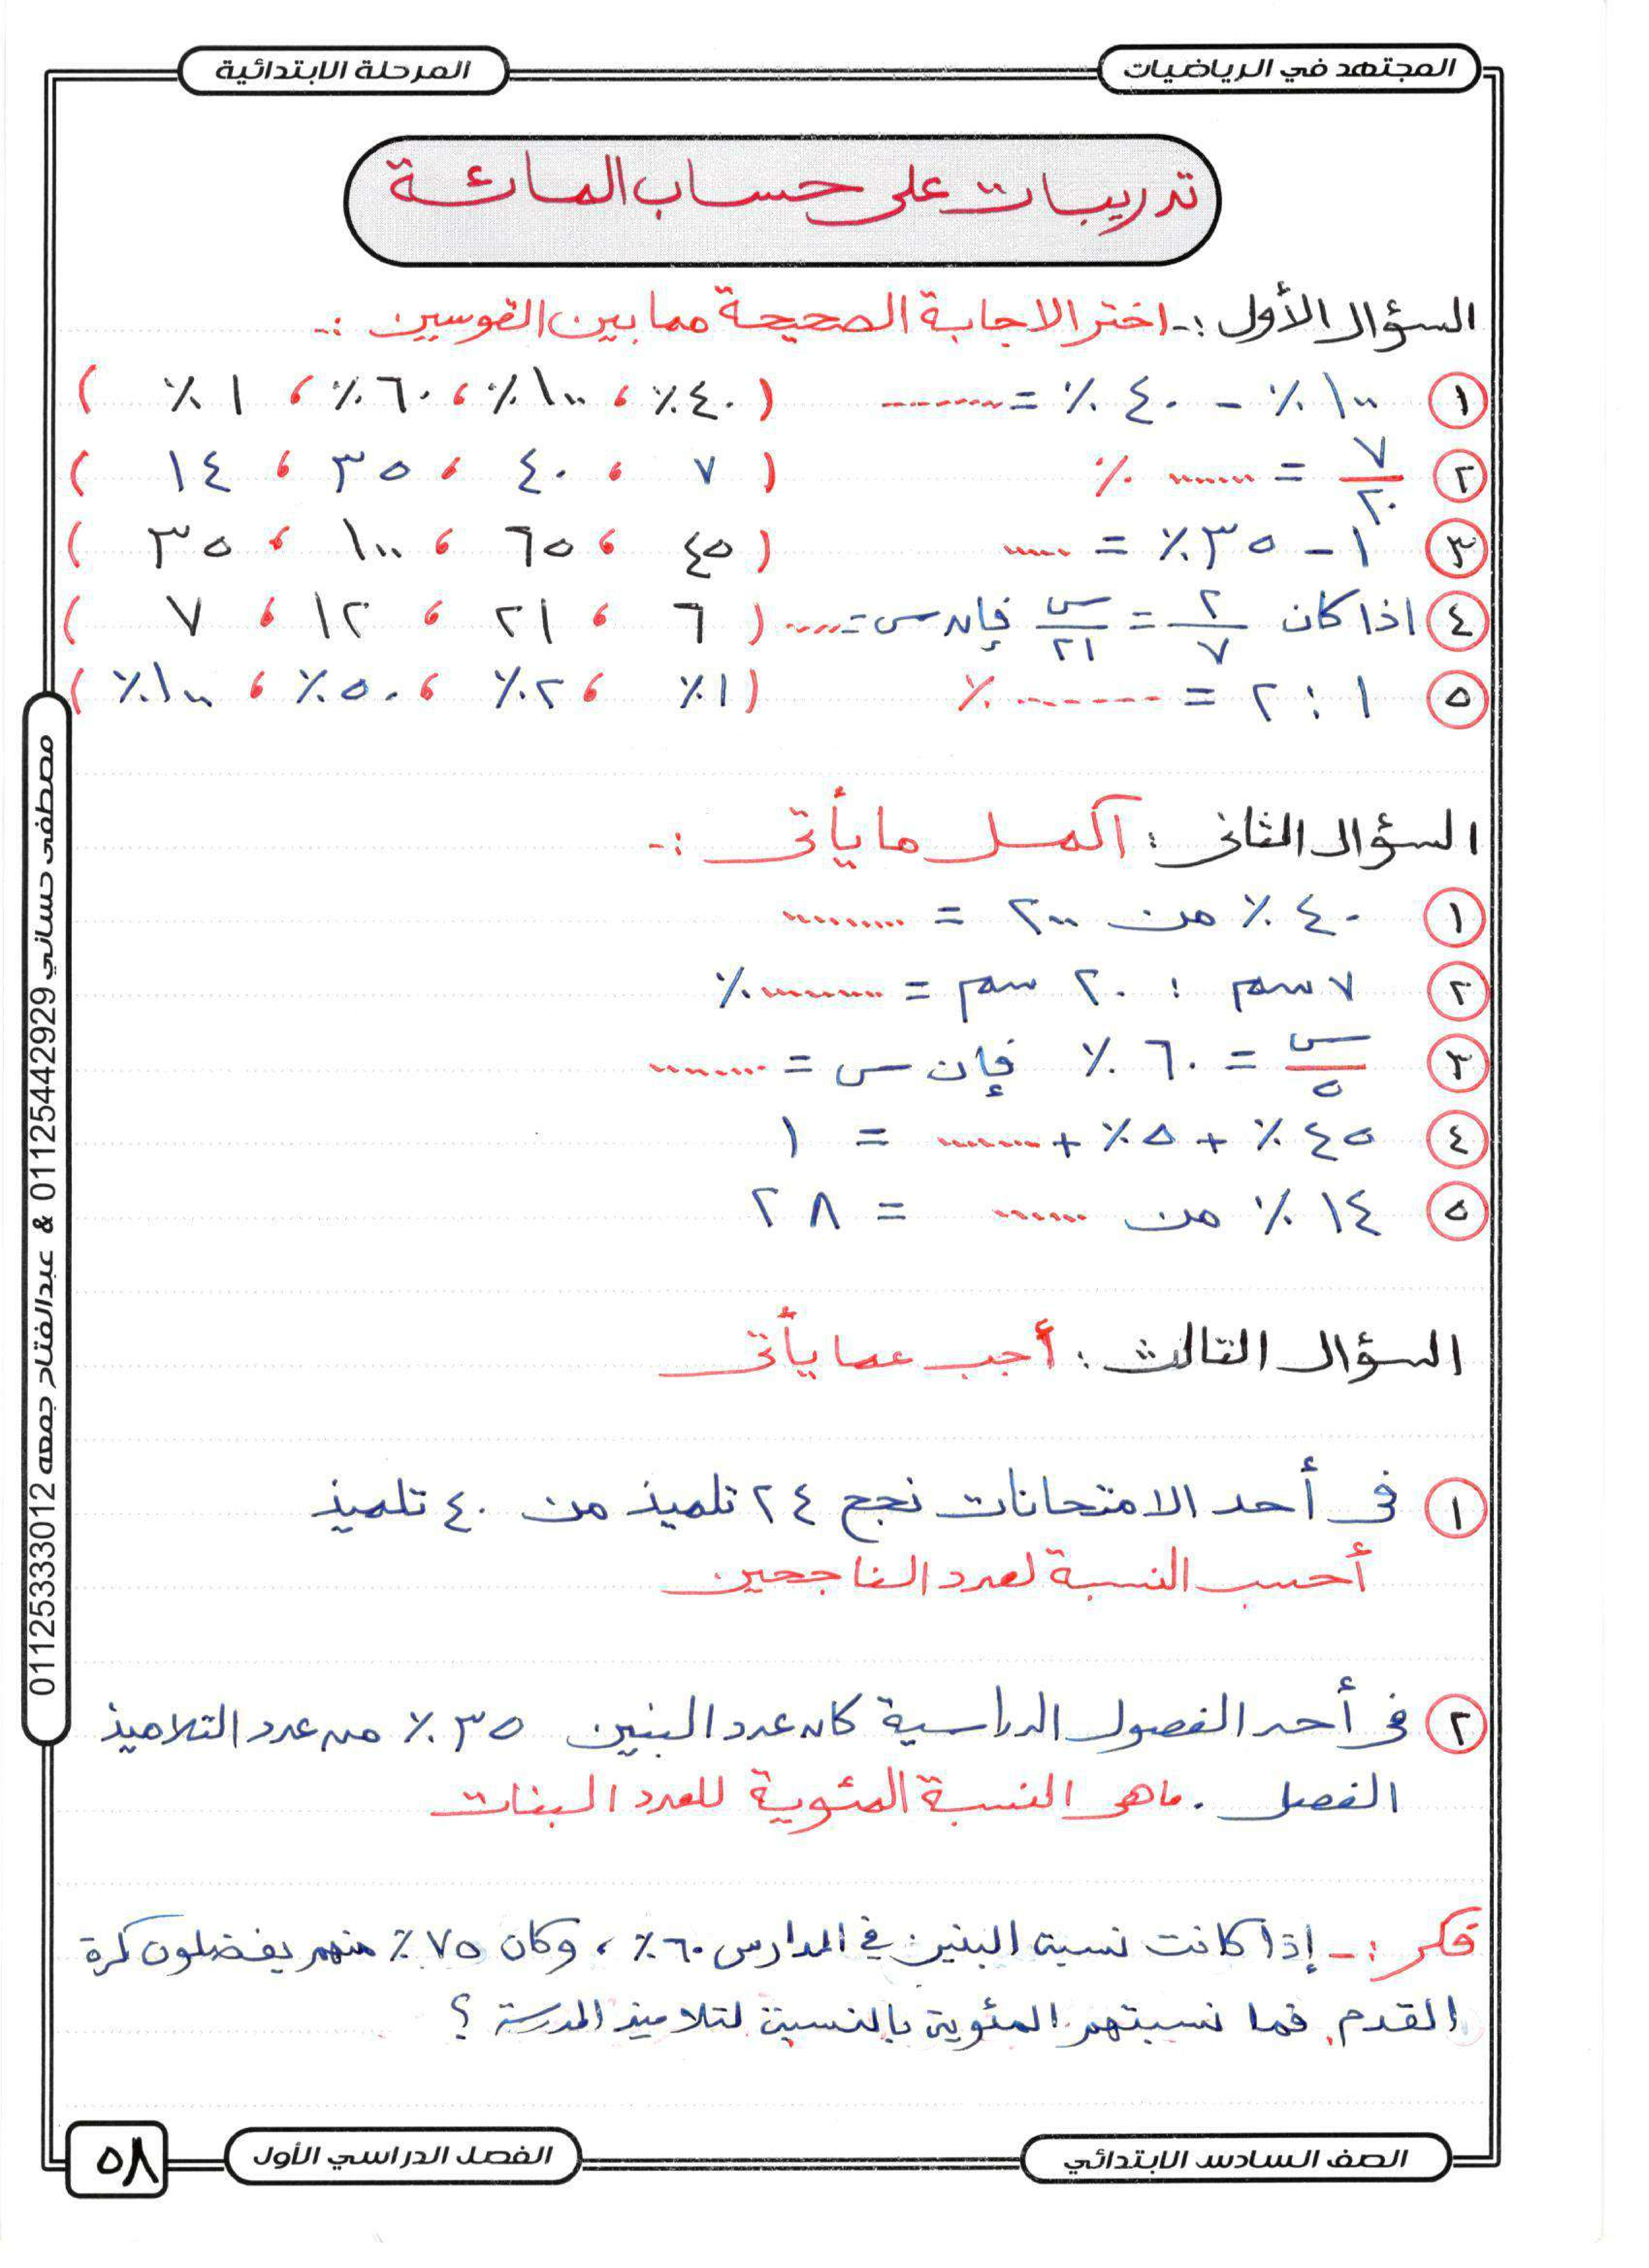 المجتهد في الرياضيات
المرحلة الابتدائية
تدريبات على حساب المائة
السؤال الأول :- اختر الاجابة الصحيحة مما بين القوسين :-
١ ١٠٠ ٪ - ٤٠ ٪ = ....... ( ٤٠ ٪ ، ١٠٠ ٪ ، ٦٠ ٪ ، ١ ٪ )
٢ ٧/٢٠ = ...... ٪ ( ٧ ، ٤٠ ، ٣٥ ، ١٤ )
٣ ١ - ٣٥ ٪ = ..... ( ٤٥ ، ٦٥ ، ١٠٠ ، ٣٥ )
٤ اذا كان ٢/٧ = س/٢١ فإن س = ..... ( ٦ ، ٢١ ، ١٢ ، ٧ )
٥ ١ : ٢ = ....... ٪ ( ١ ٪ ، ٢٠ ٪ ، ٥٠ ٪ ، ١٠٠ ٪ )
السؤال الثانى : أكمل ما يأتى :-
١ ٤٠ ٪ من ٢٠٠ = .........
٢ ٧ سم : ٢٠ سم = ......... ٪
٣ س/٥ = ٦٠ ٪ فإن س = ........
٤ ٤٥ ٪ + ٥ ٪ + ........ = ١
٥ ١٤ ٪ من ...... = ٢٨
السؤال الثالث : أجب عما يأتى
١ فى أحد الامتحانات نجح ٢٤ تلميذ من ٤٠ تلميذ
أحسب النسبة لعدد الناجحين
٢ فى أحد الفصول الدراسية كان عدد البنين ٣٥ ٪ من عدد التلاميذ
الفصل . ماهى النسبة المئوية للعدد البنات
فكر :- إذا كانت نسبة البنين في المدارس ٦٠ ٪ ، وكان ٧٥ ٪ منهم يفضلون كرة
القدم. فما نسبتهم المئوية بالنسبة لتلاميذ المدرسة ؟
مصطفى حساني 01125442929 & عبدالفتاح جمعه 01125333012
الصف السادس الابتدائي
الفصل الدراسي الأول
٥٨